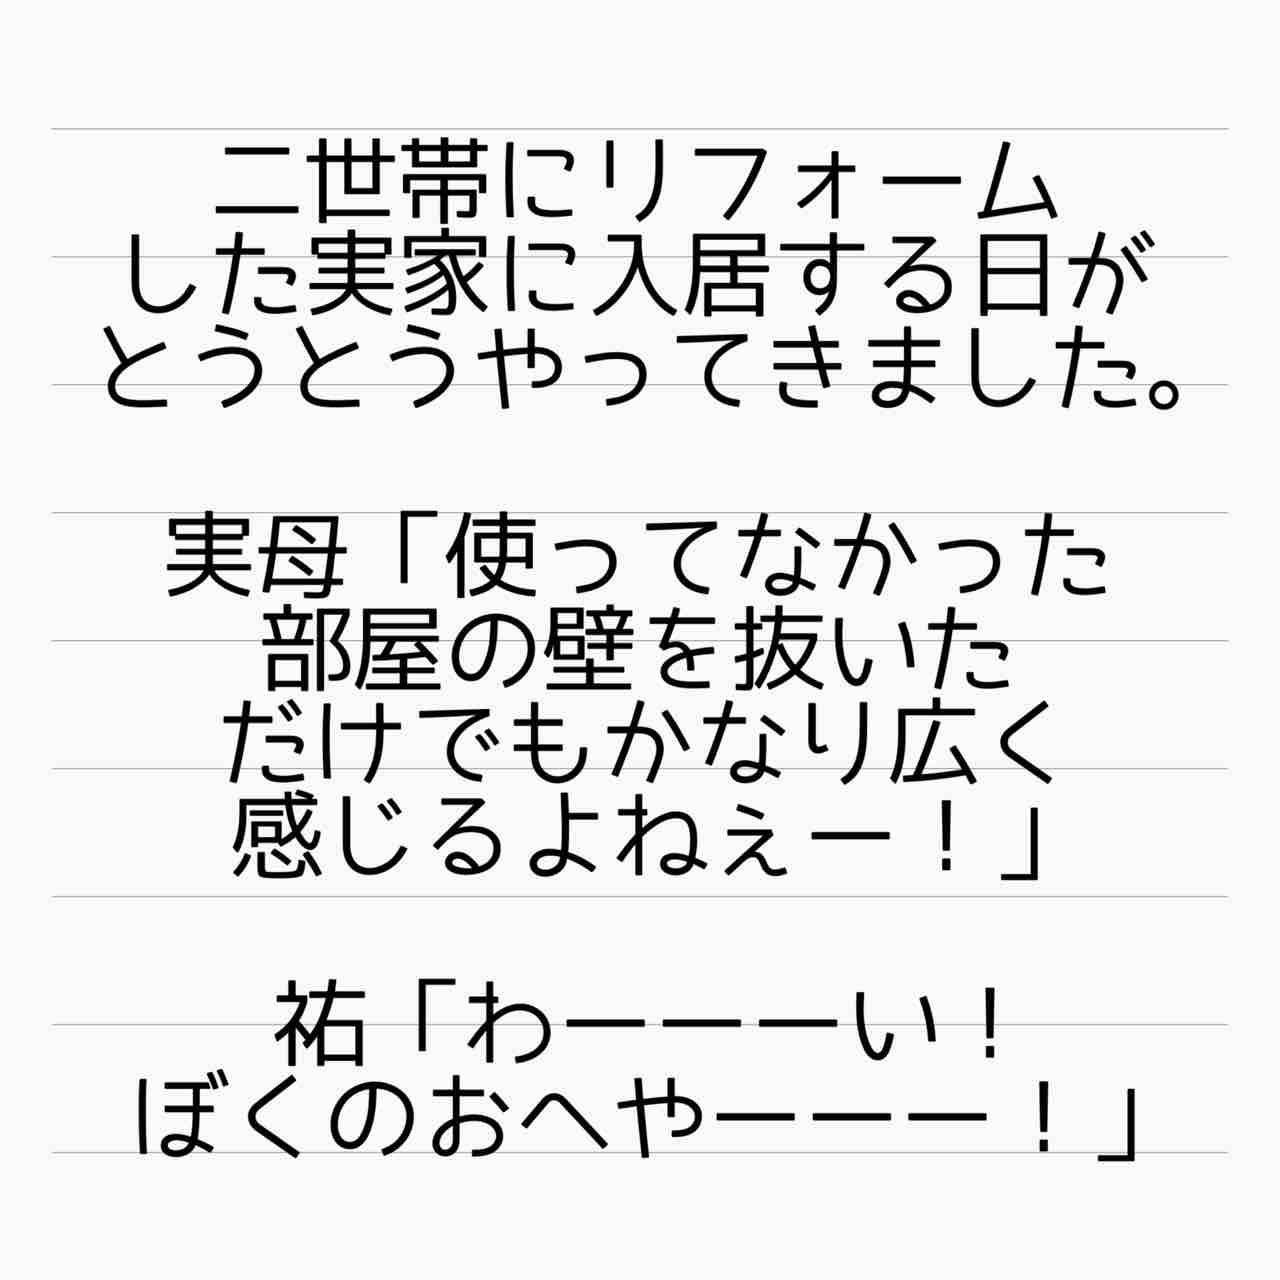 二世帯にリフォーム
した実家に入居する日が
とうとうやってきました。
実母「使ってなかった
部屋の壁を抜いた
だけでもかなり広く
感じるよねぇー！」
祐「わーーーい！
ぼくのおへやーーー！」